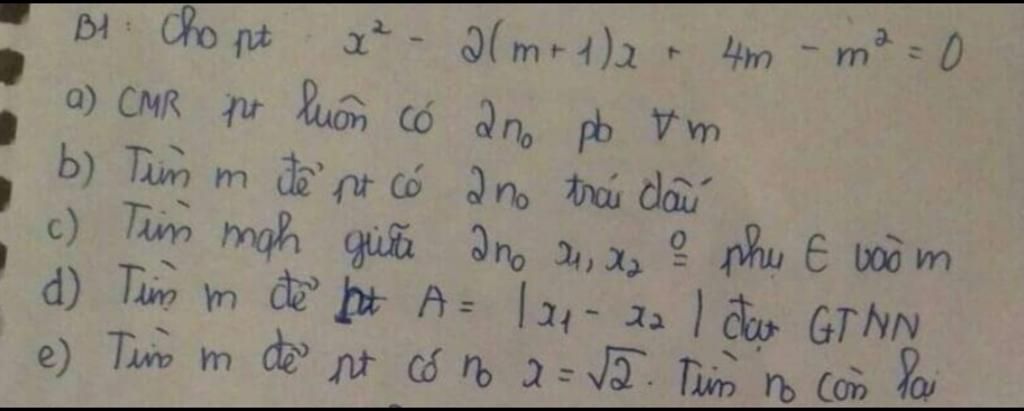 B1: Cho pt x² - 2(m+1)x + 4m - m² = 0
a) CMR pt luôn có 2n₀ pb ∀m
b) Tìm m để pt có 2n₀ trái dấu
c) Tìm mqh giữa 2n₀ x₁, x₂ phụ ∈ vào m
d) Tìm m để A = |x₁ - x₂| đạt GTNN
e) Tìm m để pt có n₀ x = √2. Tìm n₀ còn lại